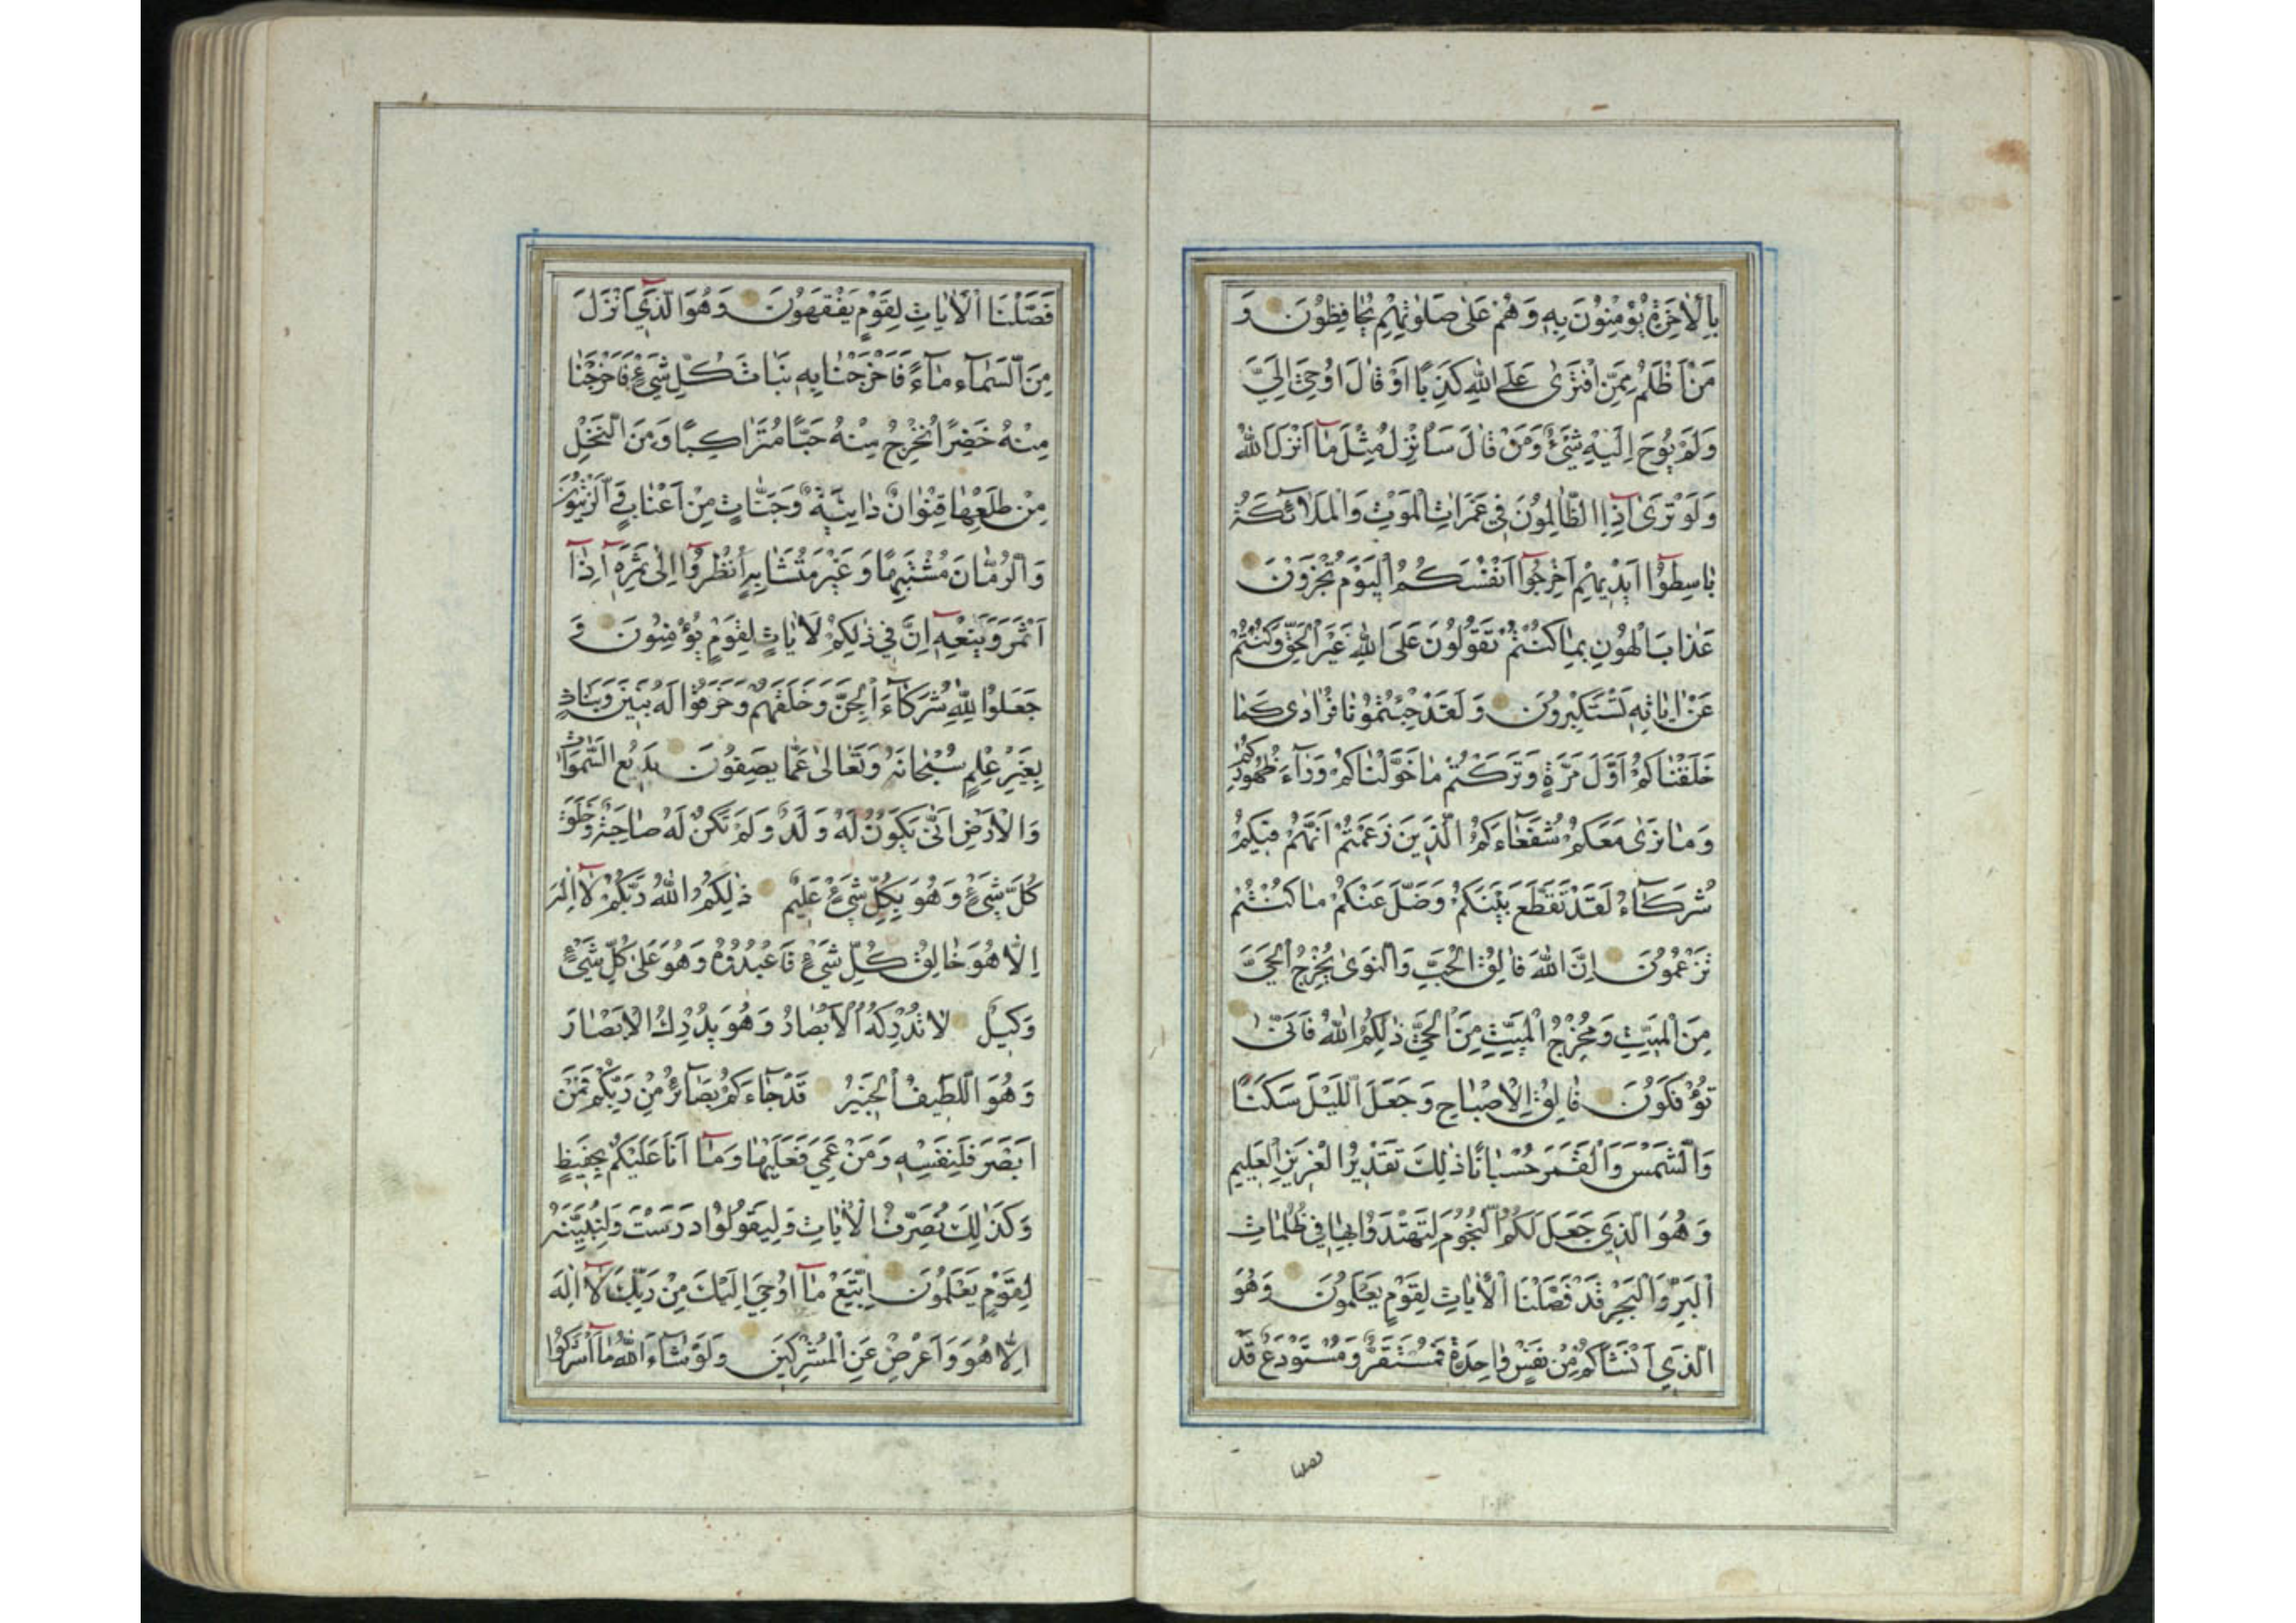 بِالْاٰخِرَةِ يُؤْمِنُونَ بِهٖ وَهُمْ عَلٰى صَلٰوتِهِمْ يُحٰافِظُونَ وَ
مَنْ اَظْلَمُ مِمَّنِ افْتَرٰى عَلَى اللّٰهِ كَذِبًا اَوْ قٰالَ اُوحِيَ اِلَيَّ
وَلَمْ يُوحَ اِلَيْهِ شَيْءٌ وَمَنْ قٰالَ سَاُنْزِلُ مِثْلَ مٰٓا اَنْزَلَ اللّٰهُ
وَلَوْ تَرٰٓى اِذِ الظّٰالِمُونَ فِي غَمَرٰاتِ الْمَوْتِ وَالْمَلٰٓائِكَةُ
بٰاسِطُٓوا اَيْدِيهِمْ اَخْرِجُٓوا اَنْفُسَكُمُ الْيَوْمَ تُجْزَوْنَ
عَذٰابَ الْهُونِ بِمٰا كُنْتُمْ تَقُولُونَ عَلَى اللّٰهِ غَيْرَ الْحَقِّ وَكُنْتُمْ
عَنْ اٰيٰاتِهٖ تَسْتَكْبِرُونَ وَلَقَدْ جِئْتُمُونٰا فُرٰادٰى كَمٰا
خَلَقْنٰاكُمْ اَوَّلَ مَرَّةٍ وَتَرَكْتُمْ مٰا خَوَّلْنٰاكُمْ وَرٰٓاءَ ظُهُورِكُمْ
وَمٰا نَرٰى مَعَكُمْ شُفَعٰٓاءَكُمُ الَّذِينَ زَعَمْتُمْ اَنَّهُمْ فِيكُمْ
شُرَكٰٓاءُ لَقَدْ تَقَطَّعَ بَيْنَكُمْ وَضَلَّ عَنْكُمْ مٰا كُنْتُمْ
تَزْعُمُونَ اِنَّ اللّٰهَ فٰالِقُ الْحَبِّ وَالنَّوٰى يُخْرِجُ الْحَيَّ
مِنَ الْمَيِّتِ وَمُخْرِجُ الْمَيِّتِ مِنَ الْحَيِّ ذٰلِكُمُ اللّٰهُ فَاَنّٰى
تُؤْفَكُونَ فٰالِقُ الْاِصْبٰاحِ وَجَعَلَ اللَّيْلَ سَكَنًا
وَالشَّمْسَ وَالْقَمَرَ حُسْبٰانًا ذٰلِكَ تَقْدِيرُ الْعَزِيزِ الْعَلِيمِ
وَهُوَ الَّذِي جَعَلَ لَكُمُ النُّجُومَ لِتَهْتَدُوا بِهٰا فِي ظُلُمٰاتِ
الْبَرِّ وَالْبَحْرِ قَدْ فَصَّلْنَا الْاٰيٰاتِ لِقَوْمٍ يَعْلَمُونَ وَهُوَ
الَّذِي اَنْشَاَكُمْ مِنْ نَفْسٍ وٰاحِدَةٍ فَمُسْتَقَرٌّ وَمُسْتَوْدَعٌ قَدْ
فصلنا
فَصَّلْنَا الْاٰيٰاتِ لِقَوْمٍ يَفْقَهُونَ وَهُوَ الَّذِٓي اَنْزَلَ
مِنَ السَّمٰٓاءِ مٰٓاءً فَاَخْرَجْنٰا بِهٖ نَبٰاتَ كُلِّ شَيْءٍ فَاَخْرَجْنٰا
مِنْهُ خَضِرًا نُخْرِجُ مِنْهُ حَبًّا مُتَرٰاكِبًا وَمِنَ النَّخْلِ
مِنْ طَلْعِهٰا قِنْوٰانٌ دٰانِيَةٌ وَجَنّٰاتٍ مِنْ اَعْنٰابٍ وَالزَّيْتُونَ
وَالرُّمّٰانَ مُشْتَبِهًا وَغَيْرَ مُتَشٰابِهٍ اُنْظُرُٓوا اِلٰى ثَمَرِهٖٓ اِذٰٓا
اَثْمَرَ وَيَنْعِهٖٓ اِنَّ فِي ذٰلِكُمْ لَاٰيٰاتٍ لِقَوْمٍ يُؤْمِنُونَ وَ
جَعَلُوا لِلّٰهِ شُرَكٰٓاءَ الْجِنَّ وَخَلَقَهُمْ وَخَرَقُوا لَهُ بَنِينَ وَبَنٰاتٍ
بِغَيْرِ عِلْمٍ سُبْحٰانَهُ وَتَعٰالٰى عَمّٰا يَصِفُونَ بَدِيعُ السَّمٰوٰاتِ
وَالْاَرْضِ اَنّٰى يَكُونُ لَهُ وَلَدٌ وَلَمْ تَكُنْ لَهُ صٰاحِبَةٌ وَخَلَقَ
كُلَّ شَيْءٍ وَهُوَ بِكُلِّ شَيْءٍ عَلِيمٌ ذٰلِكُمُ اللّٰهُ رَبُّكُمْ لٰٓا اِلٰهَ
اِلّٰا هُوَ خٰالِقُ كُلِّ شَيْءٍ فَاعْبُدُوهُ وَهُوَ عَلٰى كُلِّ شَيْءٍ
وَكِيلٌ لٰا تُدْرِكُهُ الْاَبْصٰارُ وَهُوَ يُدْرِكُ الْاَبْصٰارَ
وَهُوَ اللَّطِيفُ الْخَبِيرُ قَدْ جٰٓاءَكُمْ بَصٰٓائِرُ مِنْ رَبِّكُمْ فَمَنْ
اَبْصَرَ فَلِنَفْسِهٖ وَمَنْ عَمِيَ فَعَلَيْهٰا وَمٰٓا اَنَا عَلَيْكُمْ بِحَفِيظٍ
وَكَذٰلِكَ نُصَرِّفُ الْاٰيٰاتِ وَلِيَقُولُوا دَرَسْتَ وَلِنُبَيِّنَهُ
لِقَوْمٍ يَعْلَمُونَ اِتَّبِعْ مٰٓا اُوحِيَ اِلَيْكَ مِنْ رَبِّكَ لٰٓا اِلٰهَ
اِلّٰا هُوَ وَاَعْرِضْ عَنِ الْمُشْرِكِينَ وَلَوْ شٰٓاءَ اللّٰهُ مٰٓا اَشْرَكُوا